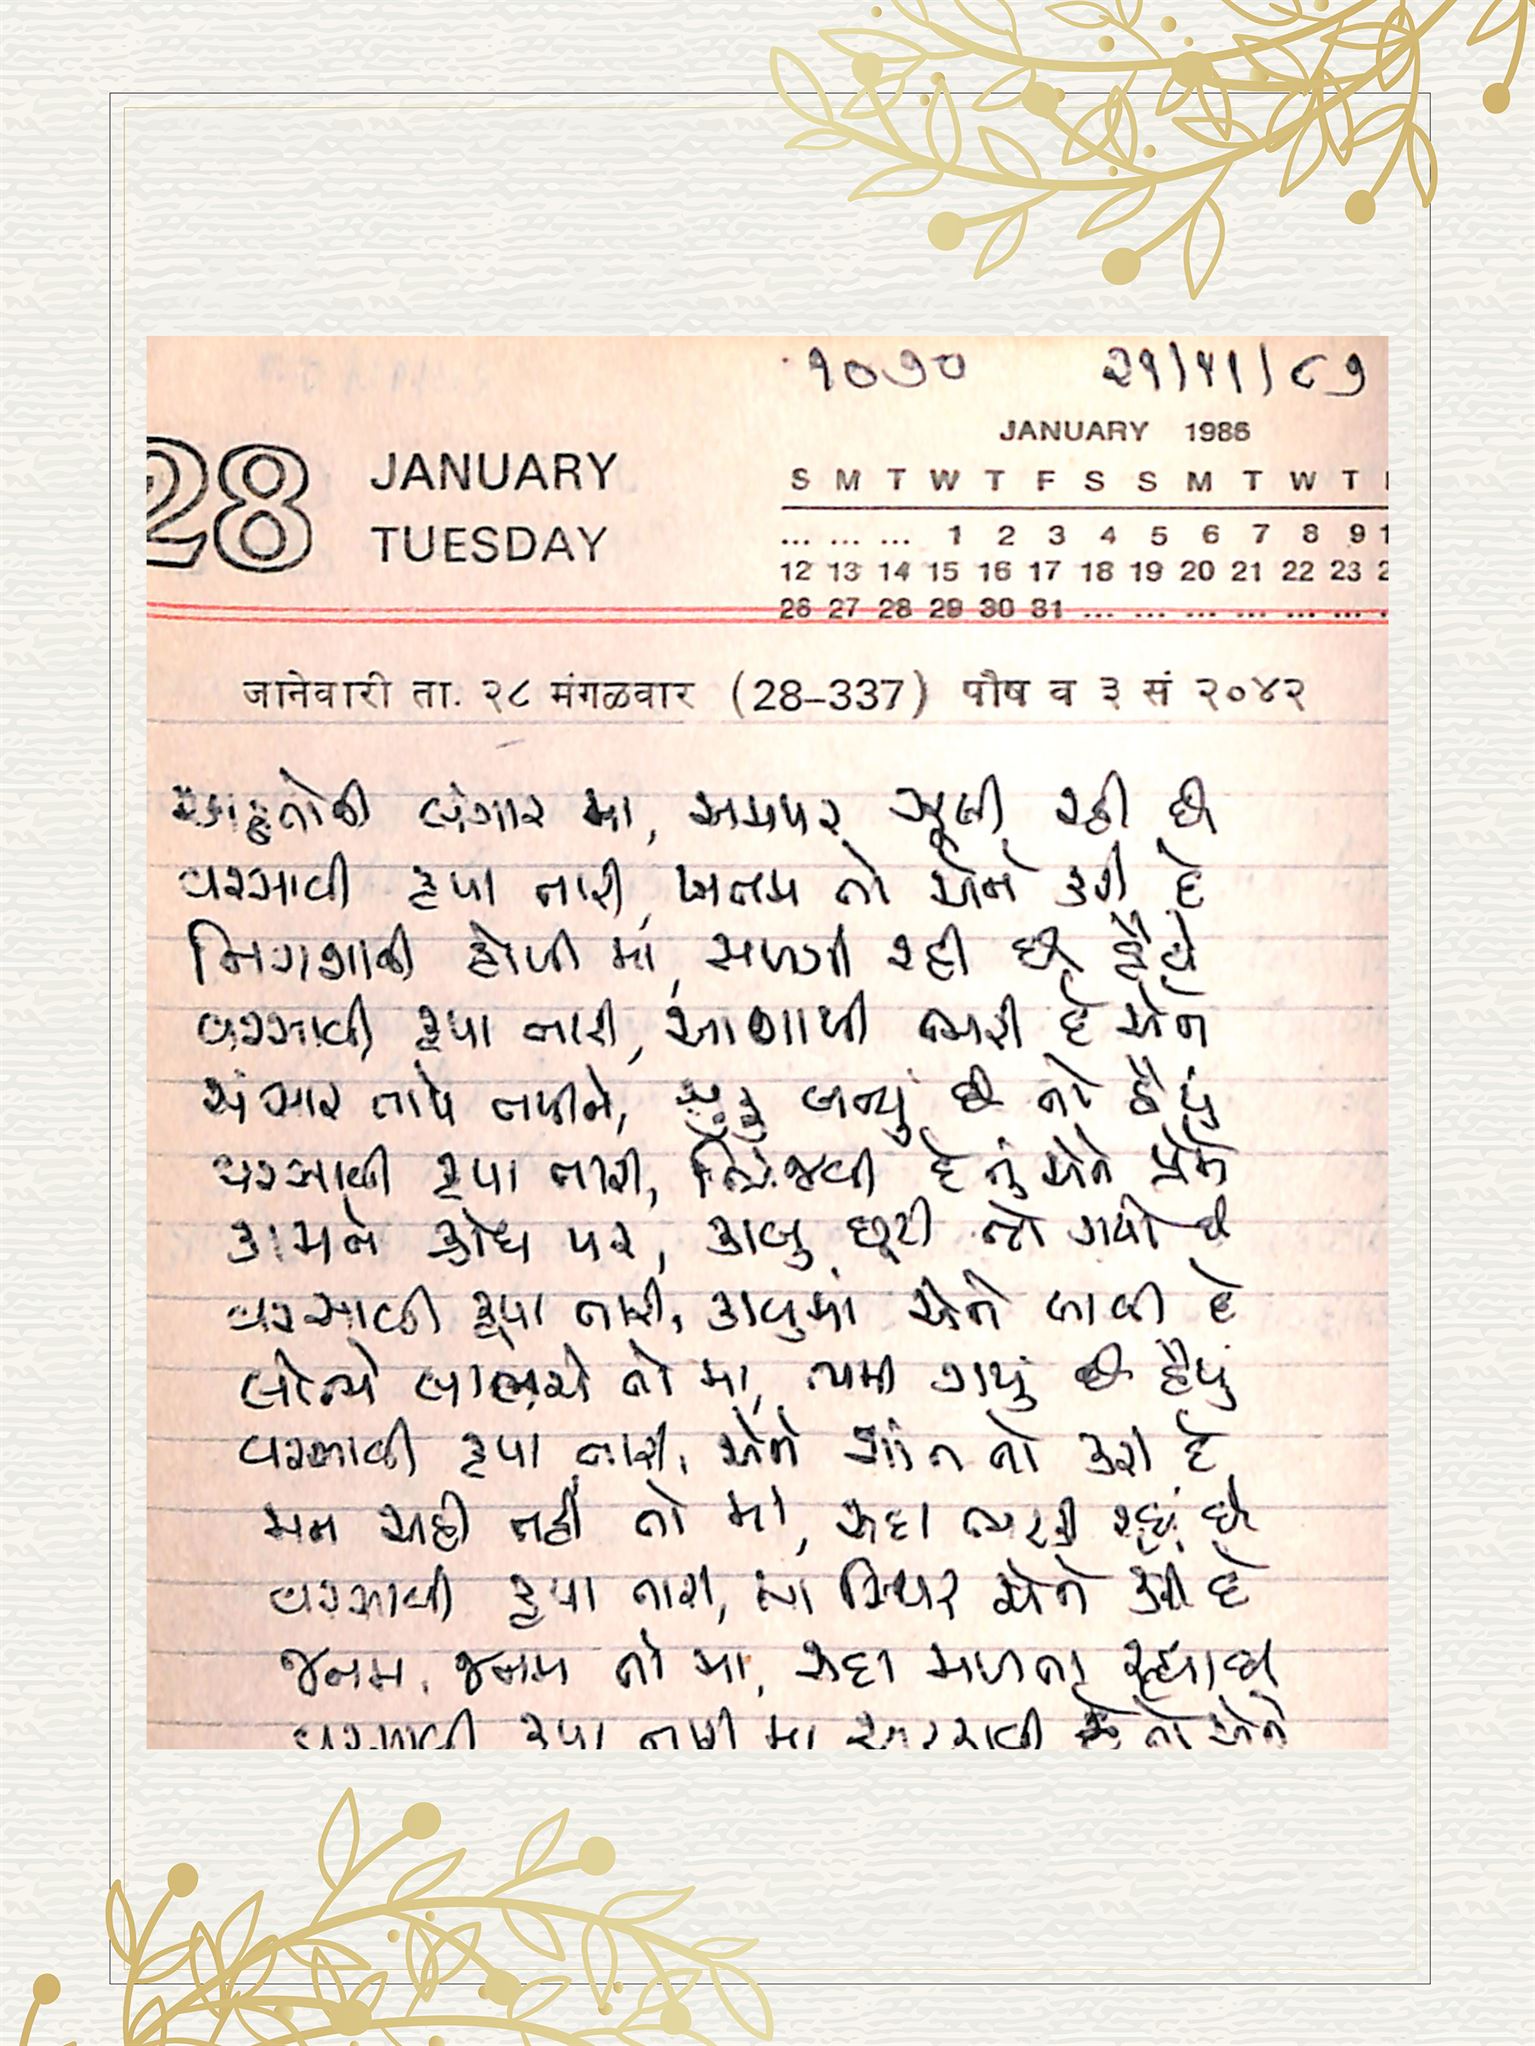 ૧૦૭૦ ૨૧/૧૧/૮૭
28 JANUARY
TUESDAY
JANUARY 1986
S M T W T F S S M T W T
... ... ... 1 2 3 4 5 6 7 8 9 1
12 13 14 15 16 17 18 19 20 21 22 23 2
26 27 28 29 30 31 ... ... ... ... ... ...
जानेवारी ता. २८ मंगळवार (28–337) पौष व ३ सं २०४२
મા, અમપર ઝૂલી રહી છે
વરસાવી કૃપા તારી, ખતમ તો એને કરી દે
નિરાશાની હોળી મા, સળગી રહી છે હૈયે
વરસાવી કૃપા તારી, આશાથી ભરી દે એને
સંસાર તાપે તપીને, સુકુ બન્યું છે તો હૈયું
વરસાવી કૃપા તારી, ભિંજવી દે તું એને પ્રેમે
કામને ક્રોધ પર, કાબુ છૂટી જો ગયો છે
વરસાવી કૃપા તારી, કાબુમાં એને લાવી દે
લોભે લાલચે તો મા, ગયું છે હૈયું
વરસાવી કૃપા તારી, એને શાંત તો કરી દે
મન રહી નહીં તો મા, સદા રહ્યું છે
વરસાવી કૃપા તારી, મા સ્થિર એને કરી દે
જનમ, જનમ તો મા, સદા મળતા રહ્યા છે
વરસાવી કૃપા તારી મા તો એને